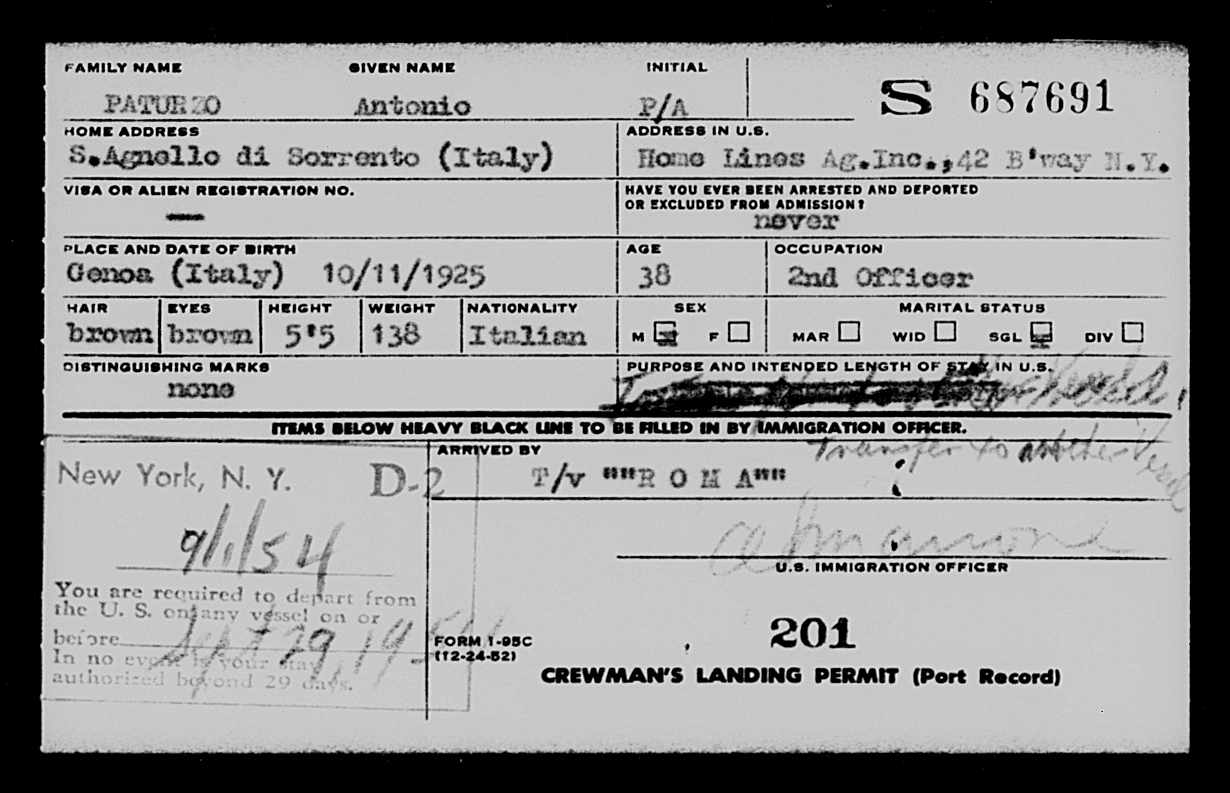 FAMILY NAME GIVEN NAME INITIAL
PATURZO Antonio P/A S 687691
HOME ADDRESS ADDRESS IN U.S.
S.Agnello di Sorrento (Italy) Home Lines Ag.Inc.,42 B'way N.Y.
VISA OR ALIEN REGISTRATION NO. HAVE YOU EVER BEEN ARRESTED AND DEPORTED
OR EXCLUDED FROM ADMISSION?
— never
PLACE AND DATE OF BIRTH AGE OCCUPATION
Genoa (Italy) 10/11/1925 38 2nd Officer
HAIR EYES HEIGHT WEIGHT NATIONALITY SEX MARITAL STATUS
brown brown 5'5 138 Italian M F MAR WID SGL DIV
DISTINGUISHING MARKS PURPOSE AND INTENDED LENGTH OF STAY IN U.S.
none
ITEMS BELOW HEAVY BLACK LINE TO BE FILLED IN BY IMMIGRATION OFFICER.
Transfer to another Vessel
ARRIVED BY
New York, N. Y. D-2 T/v ""R O M A""
9/1/54
U.S. IMMIGRATION OFFICER
You are required to depart from
the U. S. on any vessel on or
before Sept 29, 1954
In no event is your stay
authorized beyond 29 days.
FORM I-95C
(12-24-52)
201
CREWMAN'S LANDING PERMIT (Port Record)